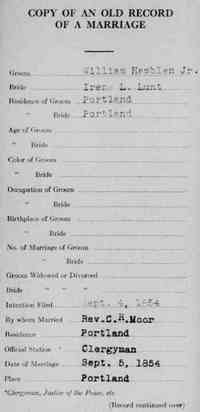 COPY OF AN OLD RECORD
OF A MARRIAGE
Groom William Hamblen Jr.
Bride Irene L. Lunt
Residence of Groom Portland
" Bride Portland
Age of Groom
" Bride
Color of Groom
" Bride
Occupation of Groom
" Bride
Birthplace of Groom
" Bride
No. of Marriage of Groom
" Bride
Groom Widowed or Divorced
Bride " " "
Intention Filed Sept. 4, 1854
By whom Married Rev.C.R.Moor
Residence Portland
Official Station * Clergyman
Date of Marriage Sept. 5, 1854
Place Portland
*Clergyman, Justice of the Peace, etc.
(Record continued over)